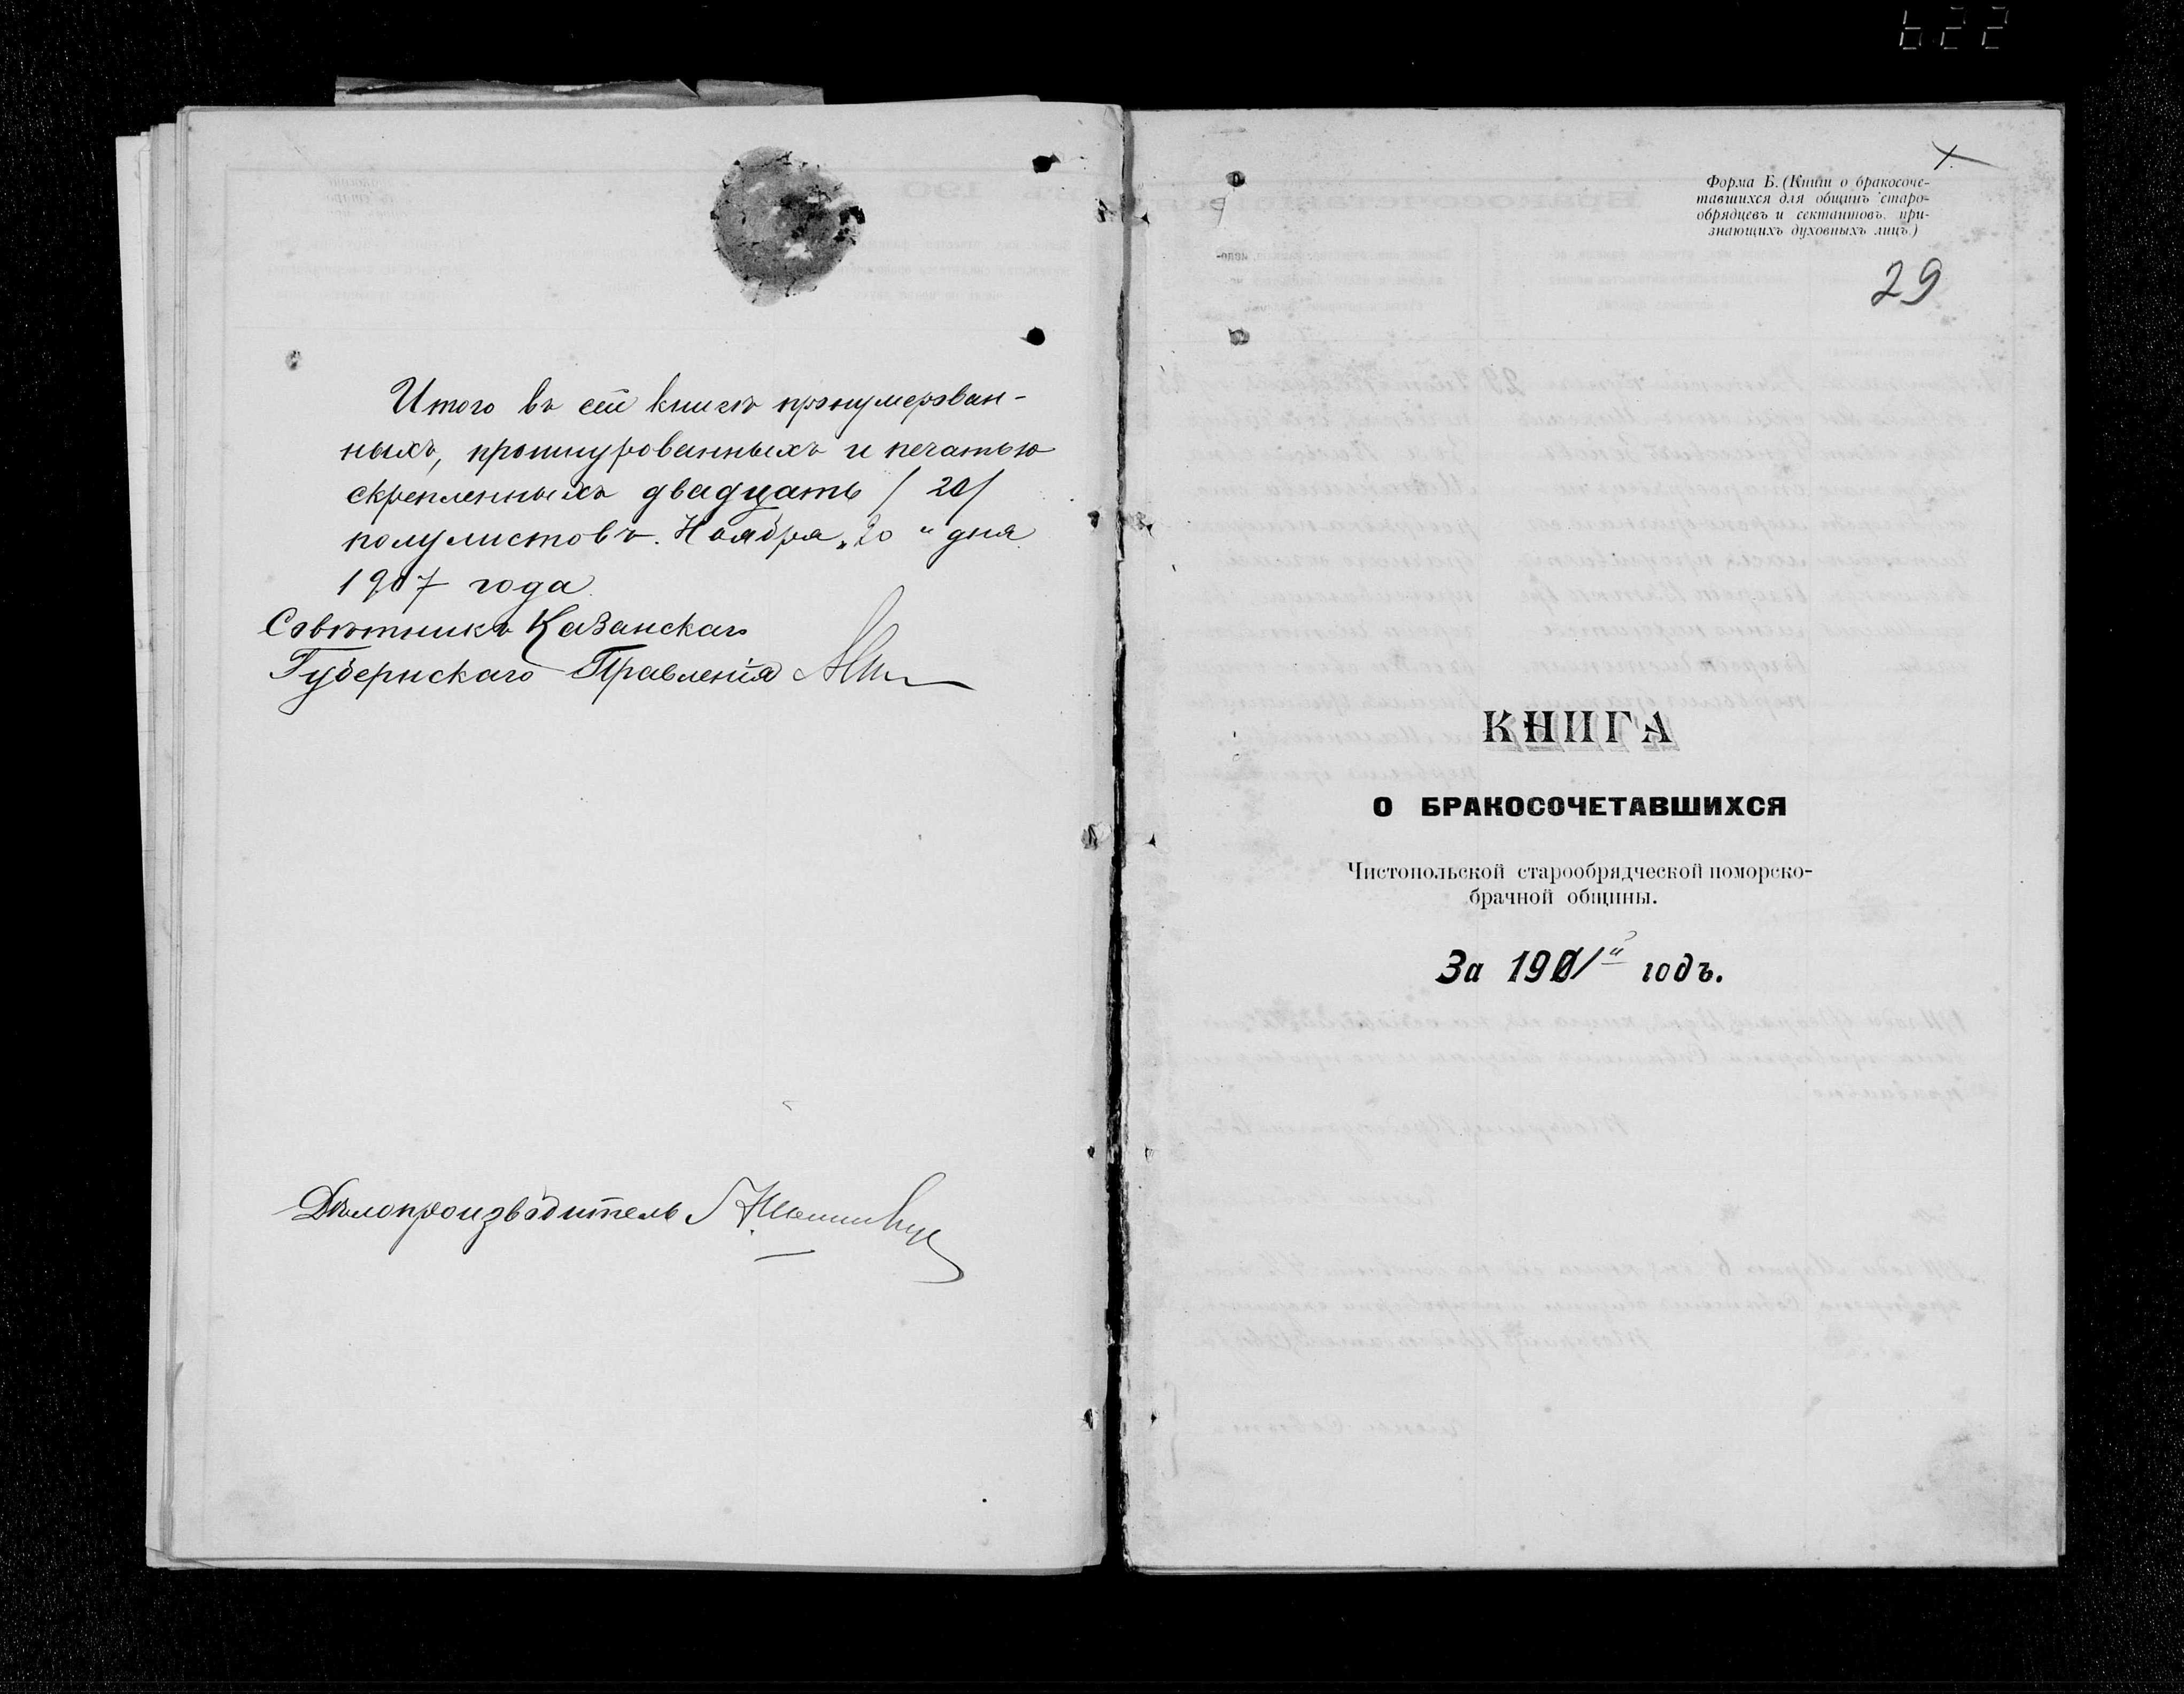 Итого въ сей книгѣ пронумерован-
ныхъ, прошнурованныхъ и печатью
скрепленныхъ двадцать /20/
полулистовъ. Ноября „20" дня
1907 года.
Совѣтникъ Казанскаго
Губернскаго Правленія
Дѣлопроизводитель
622
Форма Б. (Книги о бракосоче-
тавшихся для общинъ старо-
обрядцевъ и сектантовъ, при-
знающихъ духовныхъ лицъ.)
29
КНИГА
О БРАКОСОЧЕТАВШИХСЯ
Чистопольской старообрядческой поморско-
брачной общины.
За годъ.